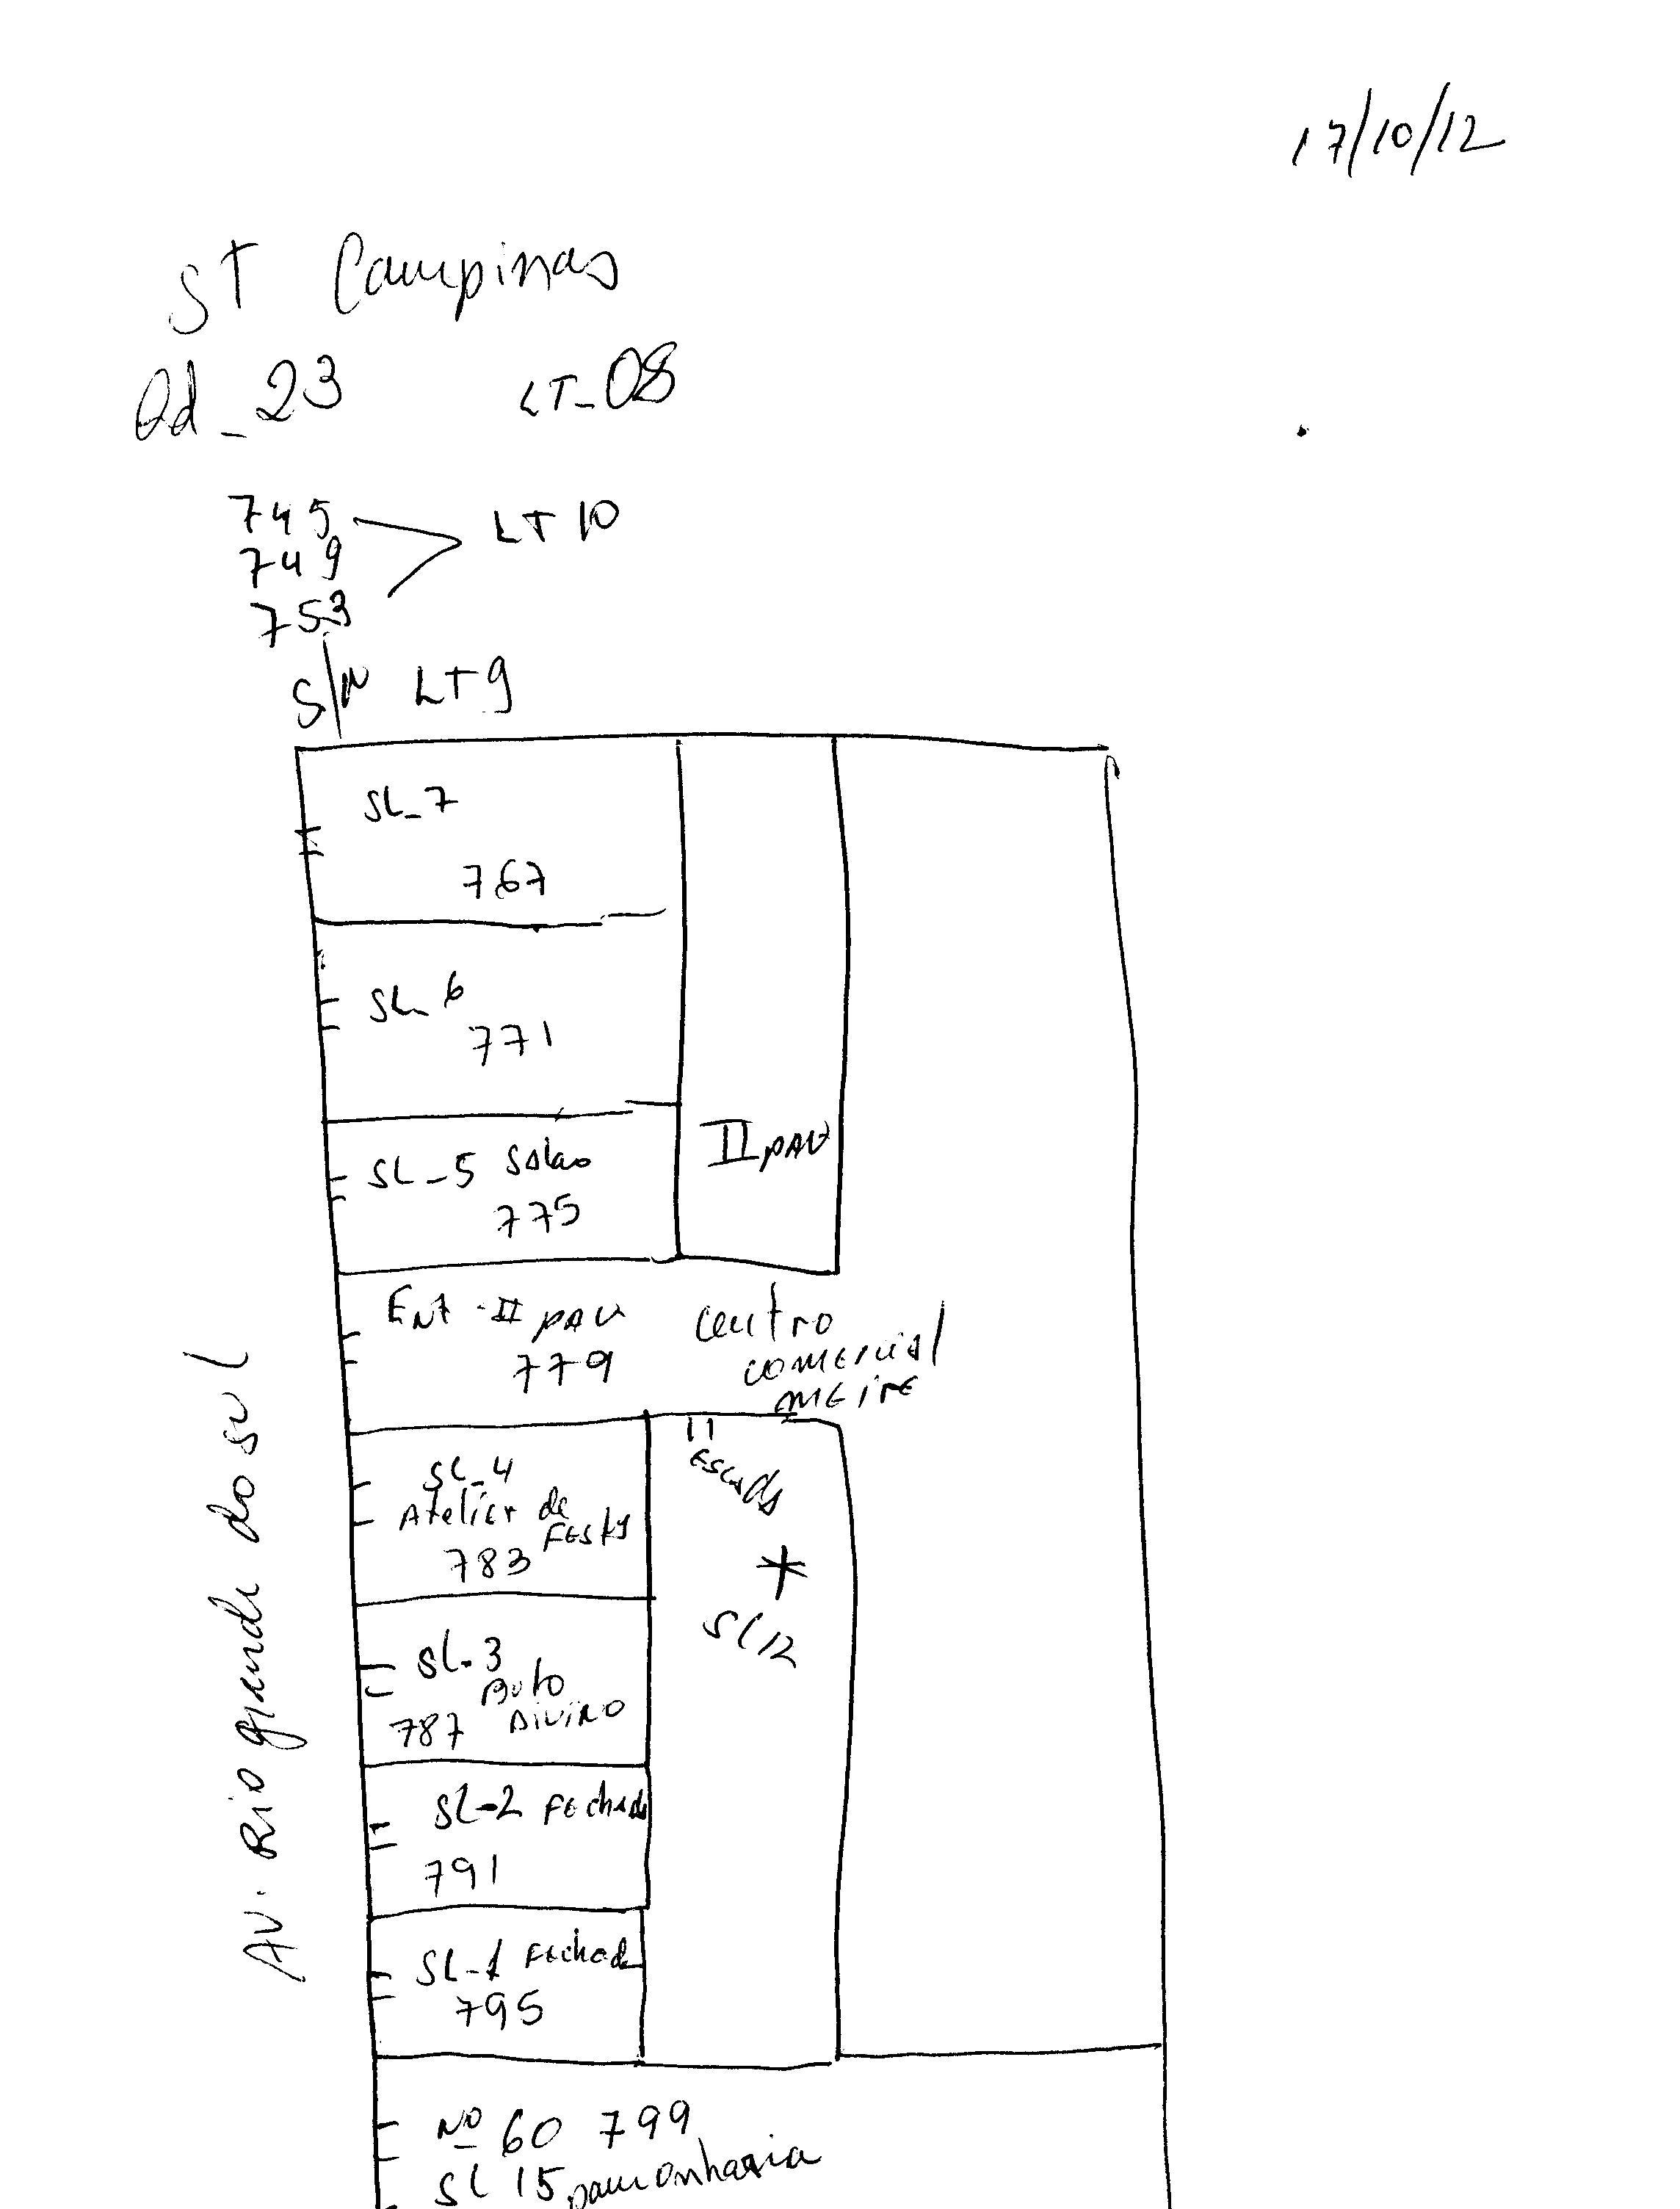 17/10/12
ST Campinas
Qd_23 LT_08
745
749 LT 10
753
S/N LT 9
SL_7
767
SL_6
771
SL_5 Salao
775
II PAV
ENT-II PAV
779
Centro
COMERCIAL
MEIRE
SL_4
Atelier de
FESTAS
783
Escada
SL12
SL-3
Auto
787 DIVINO
SL-2 Fechada
791
SL-1 Fechada
795
Nº 60 799
SL 15 pamonharia
AV. Rio grande do sul